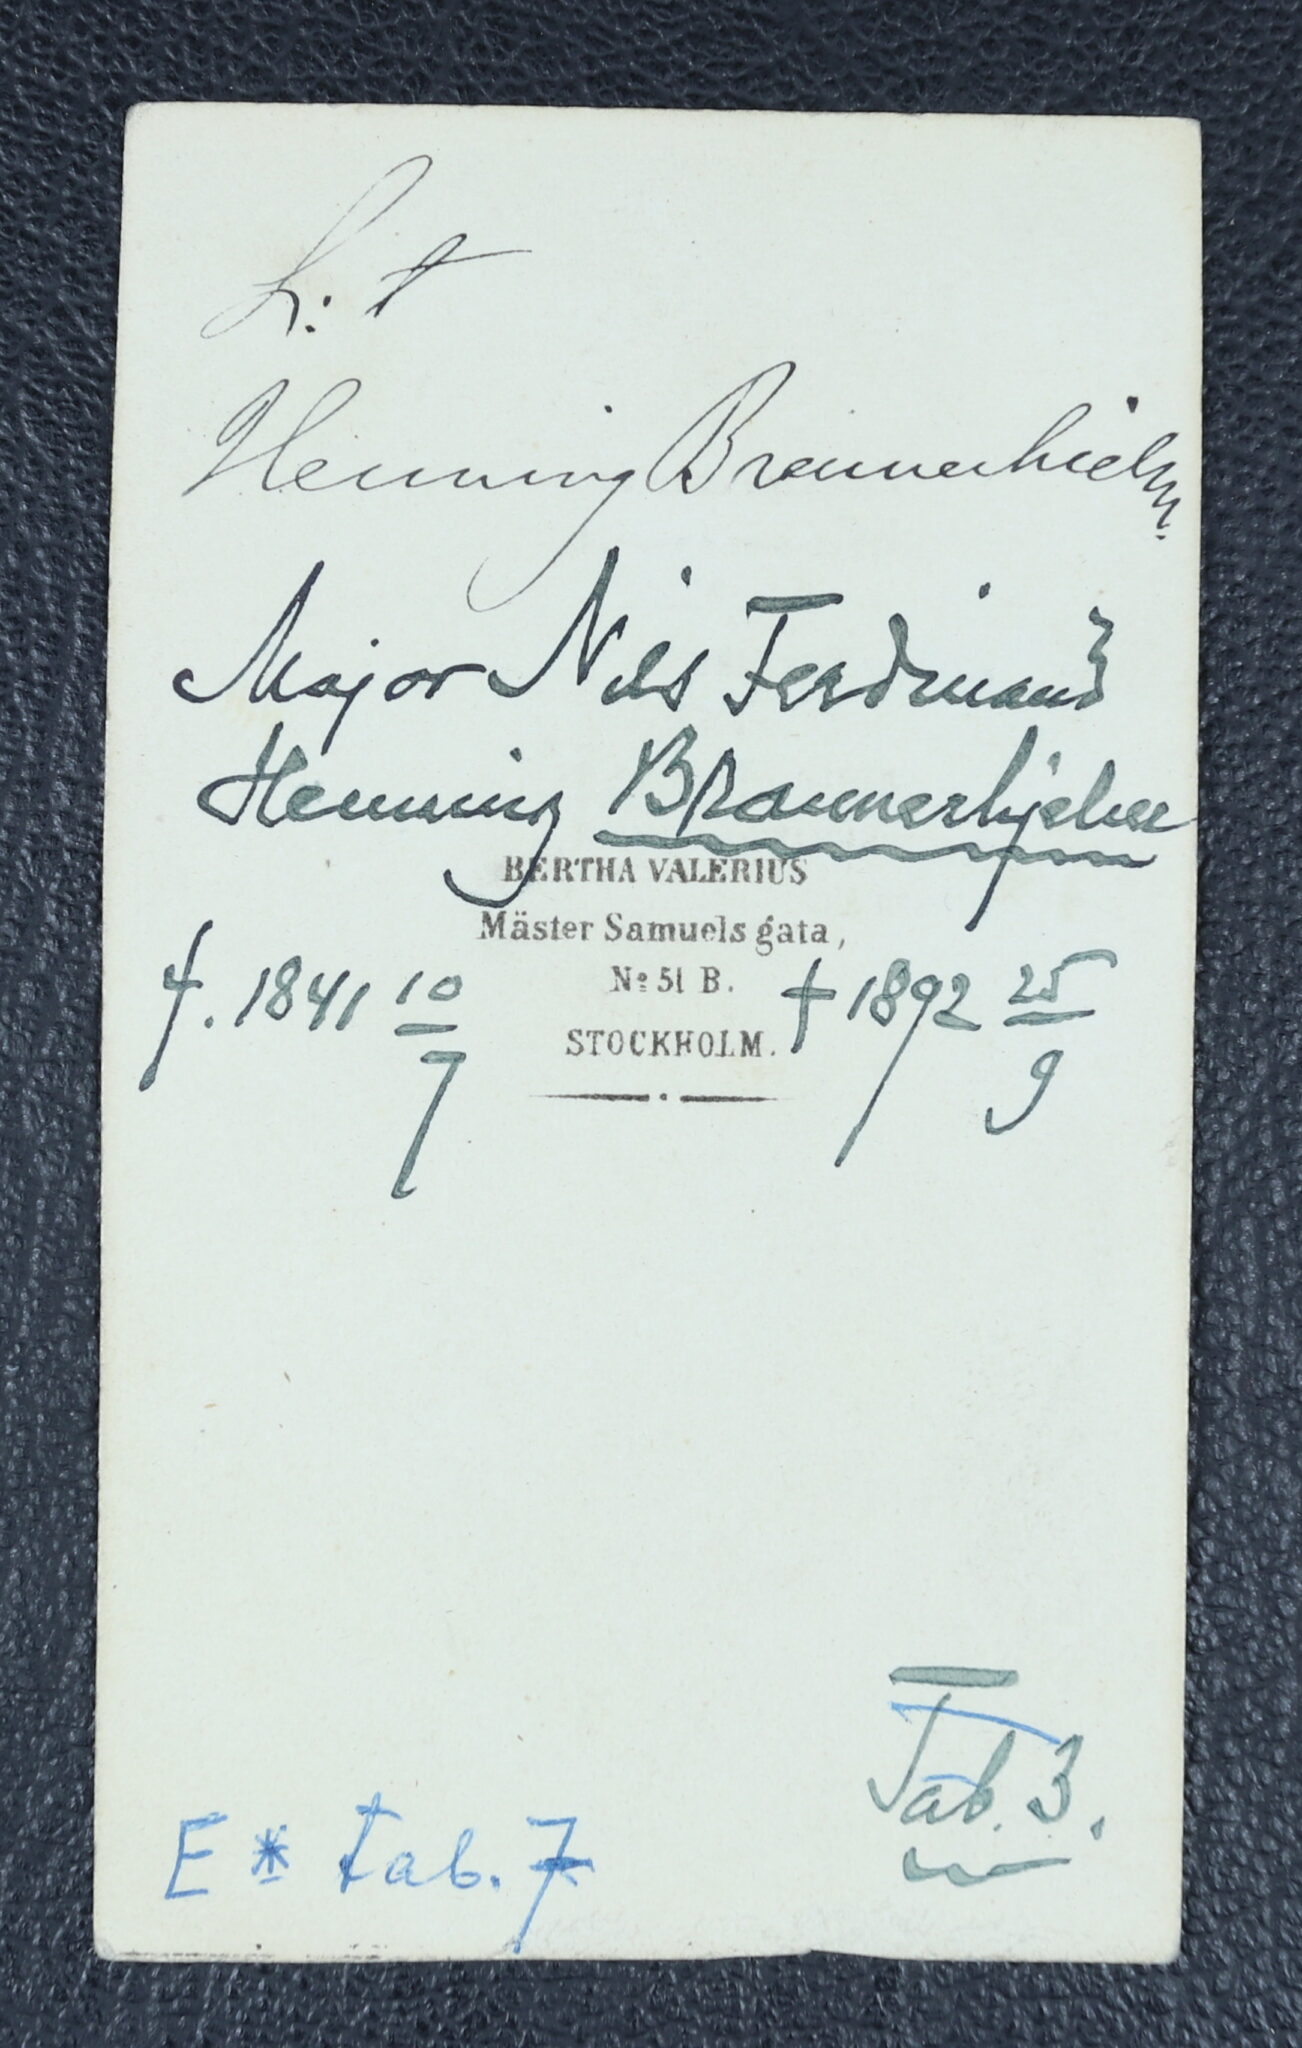 L: t
Henning Brannerhielm.
Major Nils Ferdinand
Henning Brannerhjelm
BERTHA VALERIUS
Mäster Samuels gata,
No 51 B.
STOCKHOLM.
f. 1841 10/7
† 1892 25/9
Tab. 3.
E * tab. 7